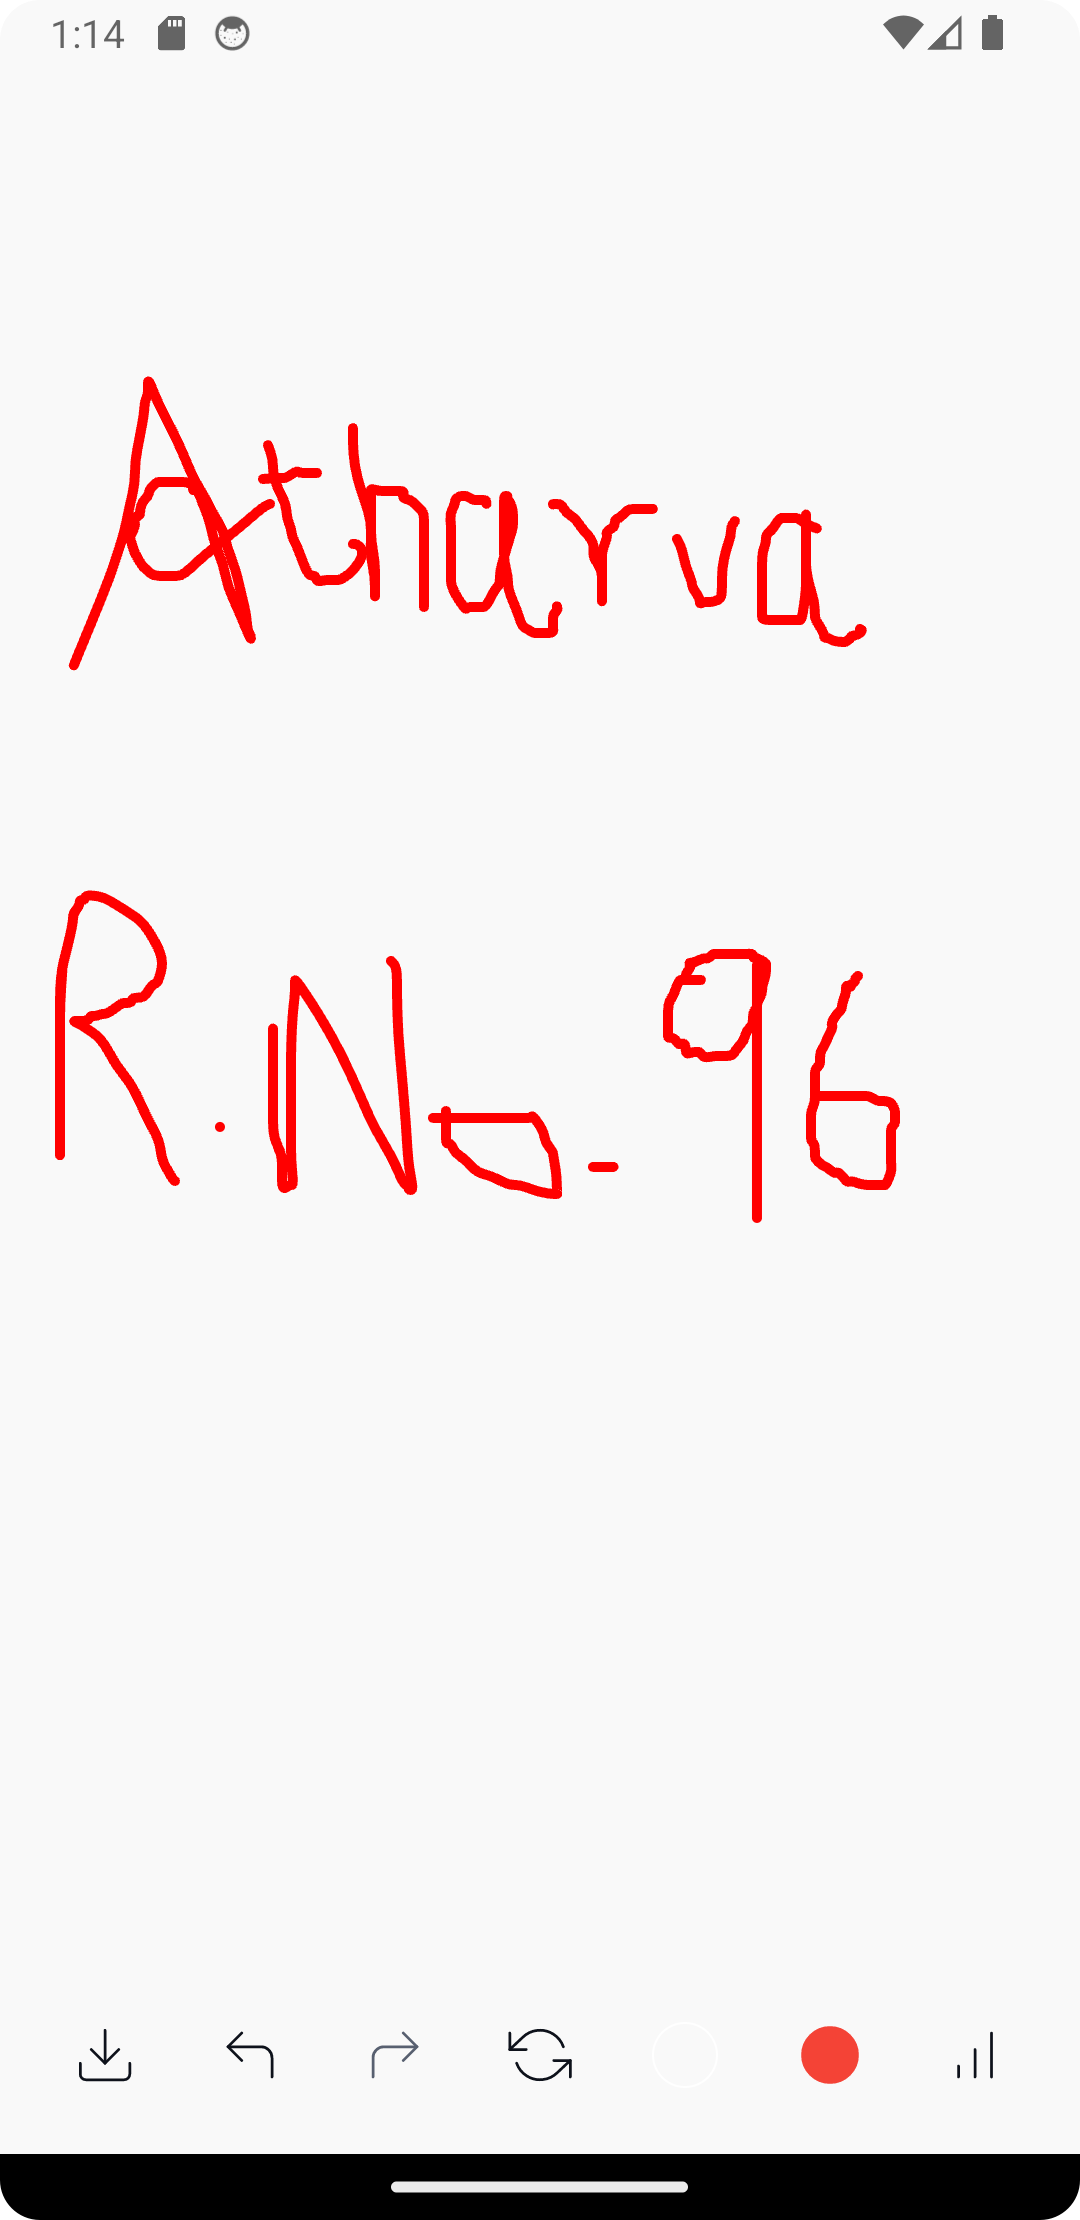 1:14
Atharva
R.No-96